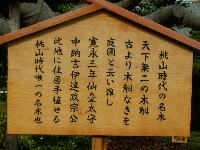 桃山時代の名木
天下無二の木斛
古より木斛なきを
庭園と云い難し
寛永三年仙台太守
中納言伊達政宗公
此地に住居手植せる
桃山時代唯一の名木也